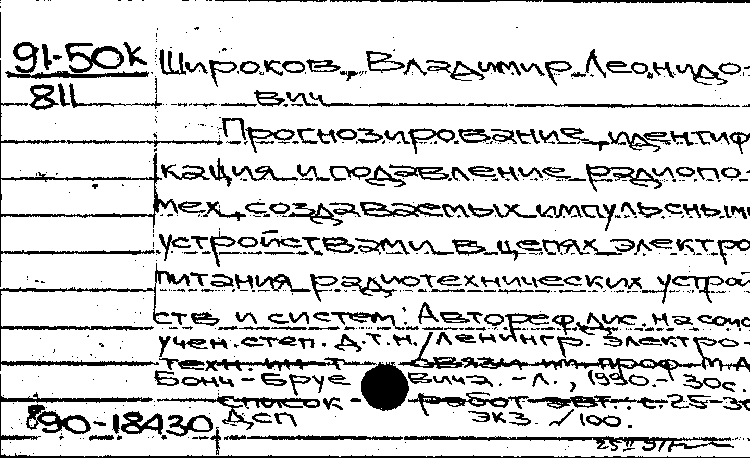 91-50к
811
Широков, Владимир Леонидо-
вич
Прогнозирование, идентиф
кация и подавление радиопо-
мех, создаваемых импульсным
устройствами в цепях электро
питания радиотехнических устрой
ств и систем: Автореф. дис. на соис
учен. степ. д.т.н./Ленингр. электро-
техн. ин-т связи им. проф. М.А
Бонч-Бруевича. - Л., 1990. - 30с.
Список работ авт.: с. 25-30
ДСП экз. √100.
90-18430